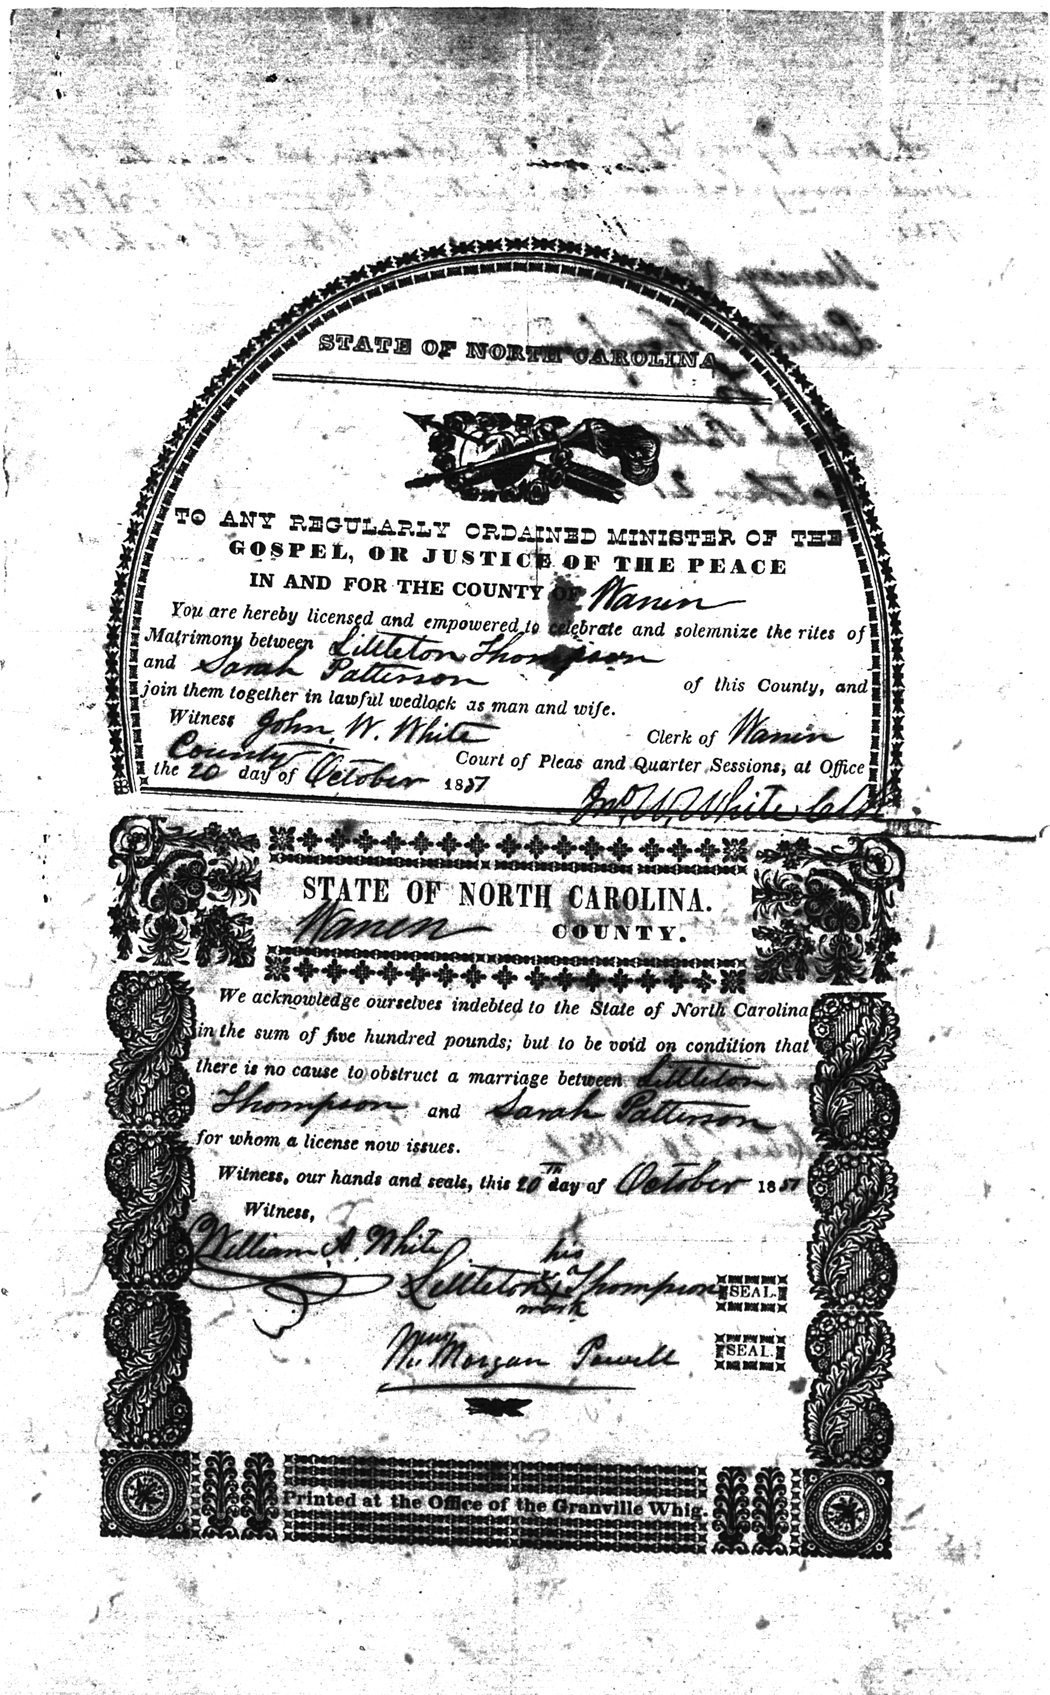 STATE OF NORTH CAROLINA
TO ANY REGULARLY ORDAINED MINISTER OF THE
GOSPEL, OR JUSTICE OF THE PEACE
IN AND FOR THE COUNTY OF Warren
You are hereby licensed and empowered to celebrate and solemnize the rites of
Matrimony between Littleton Thompson
and Sarah Patterson of this County, and
join them together in lawful wedlock as man and wife.
Witness John W. White Clerk of Warren
County Court of Pleas and Quarter Sessions, at Office
the 20 day of October 1851
Jno. W. White Clk
STATE OF NORTH CAROLINA.
Warren COUNTY.
We acknowledge ourselves indebted to the State of North Carolina
in the sum of five hundred pounds; but to be void on condition that
there is no cause to obstruct a marriage between Littleton
Thompson and Sarah Patterson
for whom a license now issues.
Witness, our hands and seals, this 20th day of October 1851
Witness,
William A. White
his
Littleton X Thompson SEAL.
mark
Morgan Powell SEAL.
Printed at the Office of the Granville Whig.